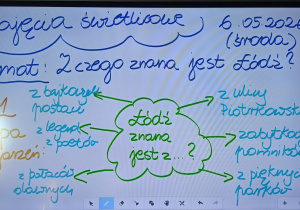 zajęcia świetlicowe 6.05.202
(środa)
mat: Z czego znana jest Łódź?
z bajkowych
postaci
z legend
z poetów
z pisarzy
sławnych
Łódź
znana
jest z...?
z ulicy
Piotrkowsk
zabytków
pomników
z pięknych
parków